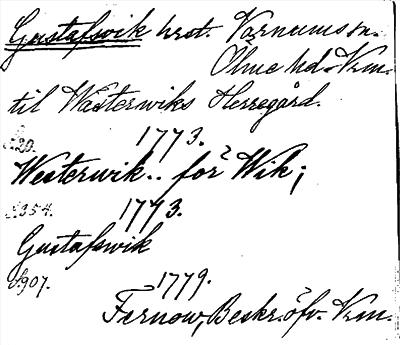 Gustafsvik hrst. Varnums sn.
Ölme hd. Vrm.
til Wästerwiks Herregård.
S.20. 1773.
Westerwik.. för Wik;
S.354. 1773.
Gustafswik
S.907. 1779.
Fernow, Beskr. öfv. Vrm.